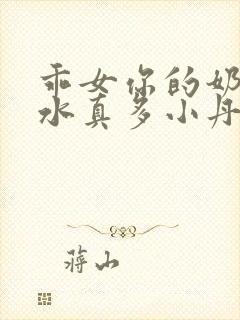 乖女你的奶
水真多小丹
蒋山